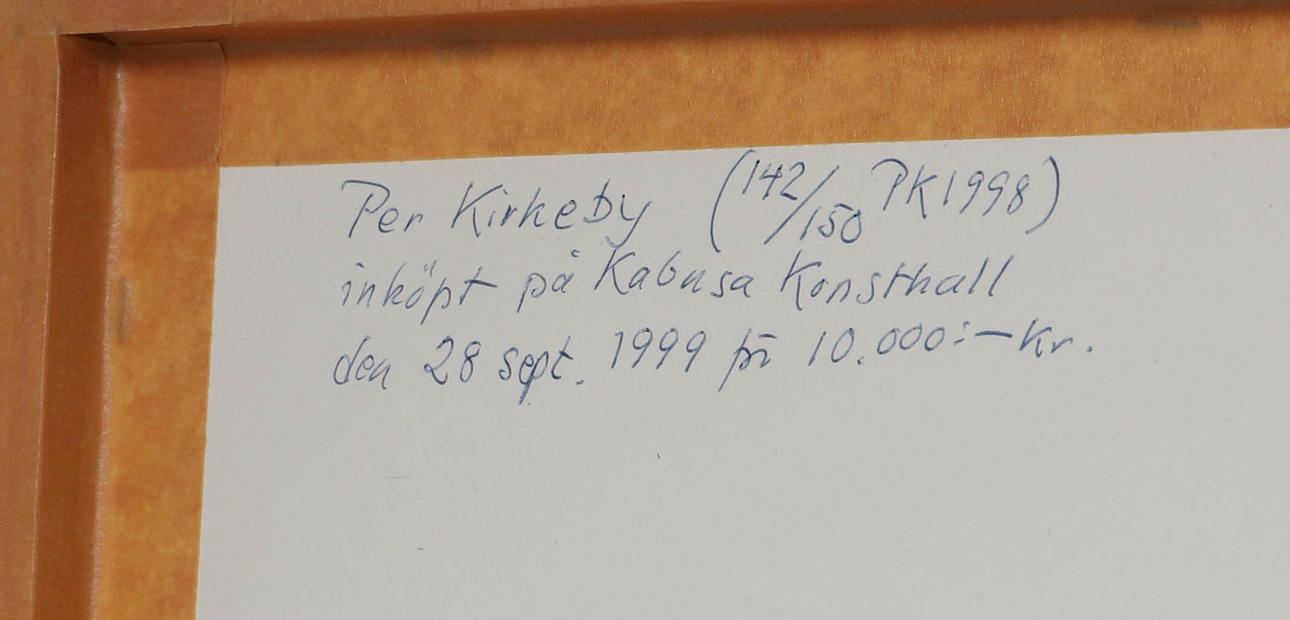 Per Kirkeby (142/150 PK1998)
inköpt på Kabusa Konsthall
den 28 sept. 1999 för 10.000:- Kr.